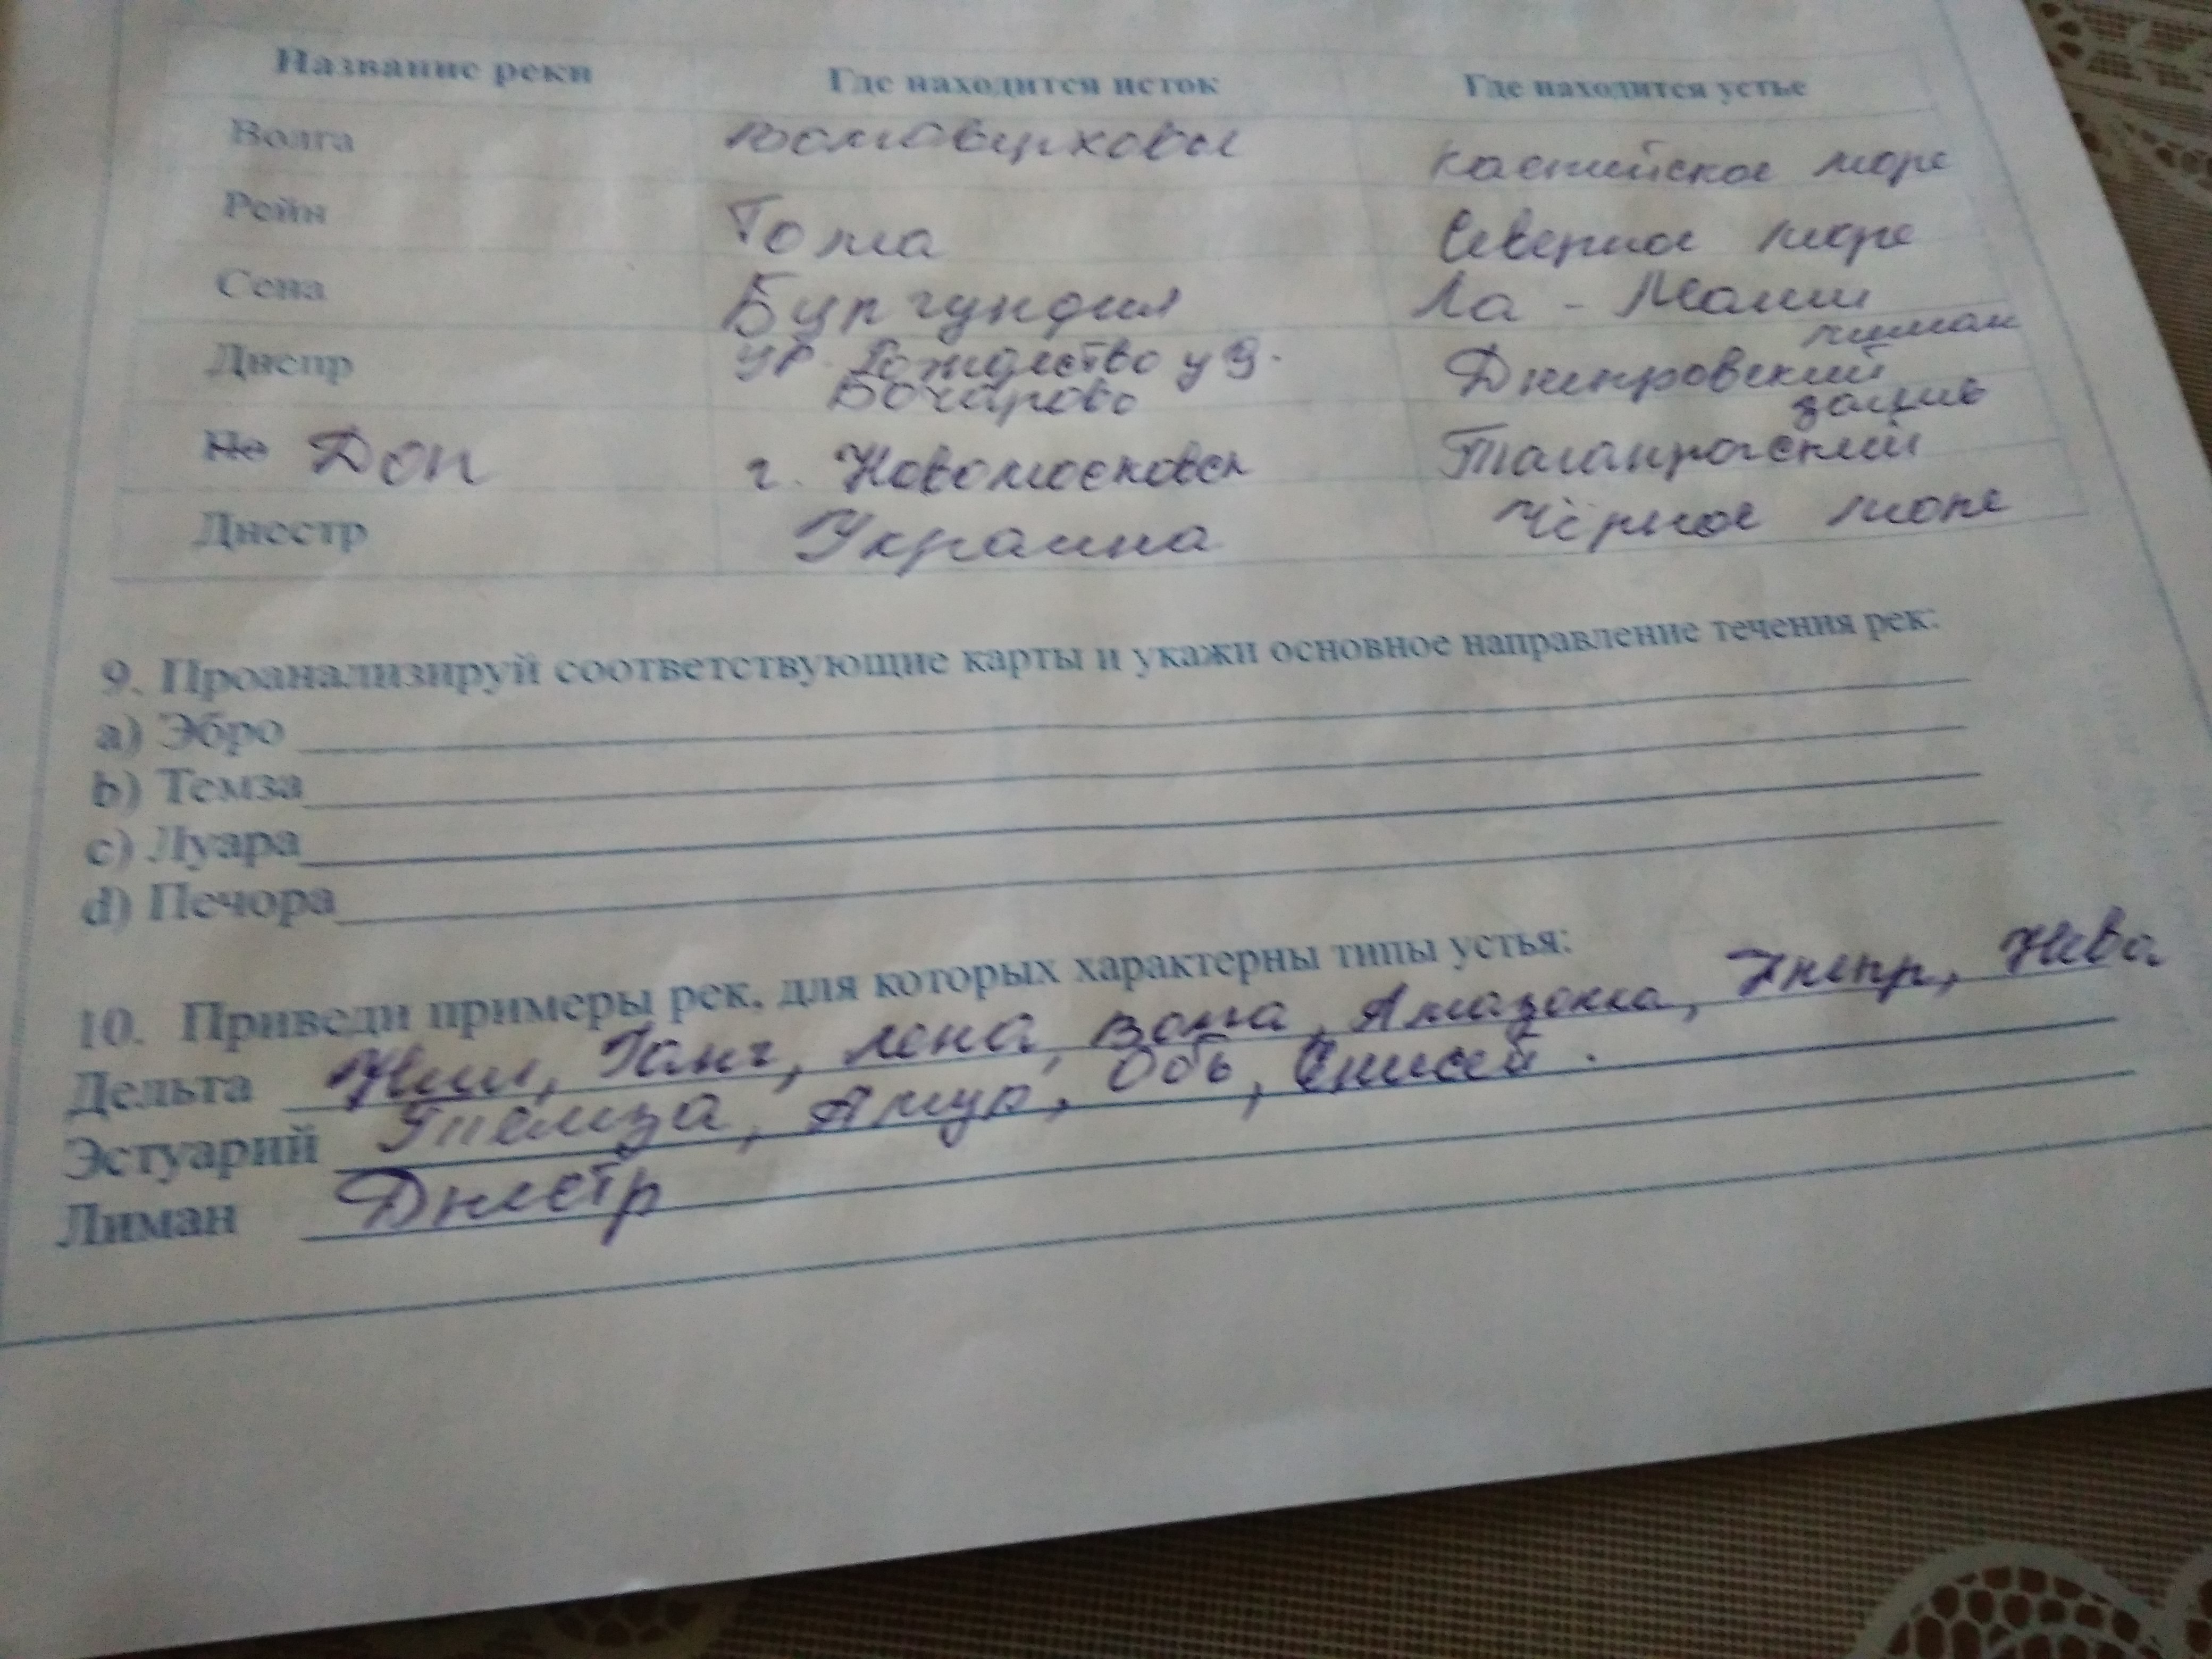 Название реки Где находится исток Где находится устье
Волга Волговерховье Каспийское море
Рейн Тома Северное море
Сена Бургундия Ла - Манш
Днепр ур. Рождество у д. Бочарово Днепровский лиман
По Дон г. Новомосковск Таганрогский залив
Днестр Украина Чёрное море
9. Проанализируй соответствующие карты и укажи основное направление течения рек:
a) Эбро
b) Темза
c) Луара
d) Печора
10. Приведи примеры рек, для которых характерны типы устья:
Дельта Нил, Ганг, Лена, Волга, Амазонка, Днепр, Нева
Эстуарий Темза, Амур, Обь, Енисей.
Лиман Днестр